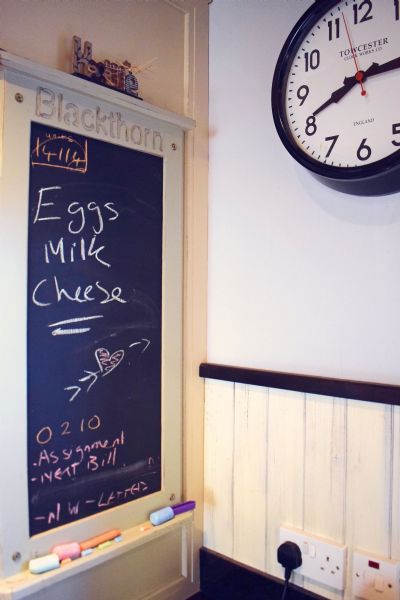 Blackthorn
14114
Eggs
Milk
Cheese
0210
-Assignment
-NEXT Bill
-N W - LETTER
10 11 12
9
8
7 6 5
TOWCESTER
CLOCK WORKS CO
ENGLAND